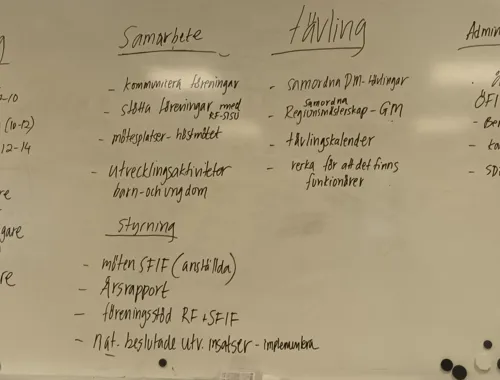 g
-10
(10-12)
12-14
re
gare
re
Samarbete
- kommunicera föreningar
- stötta föreningar med
RF-SISU
- mötesplatser - höstmötet
- utvecklingsaktiviteter
barn- och ungdom
Styrning
- möten SFIF (anställda)
- Årsrapport
- föreningsstöd RF + SFIF
- nat. beslutade utv. insatser - implementera
tävling
- samordna DM-tävlingar
samordna
- Regionsmästerskap - GM
- tävlingskalender
- verka för att det finns
funktionärer
Admin
ÖFI
- Ber
- ka
- SDF